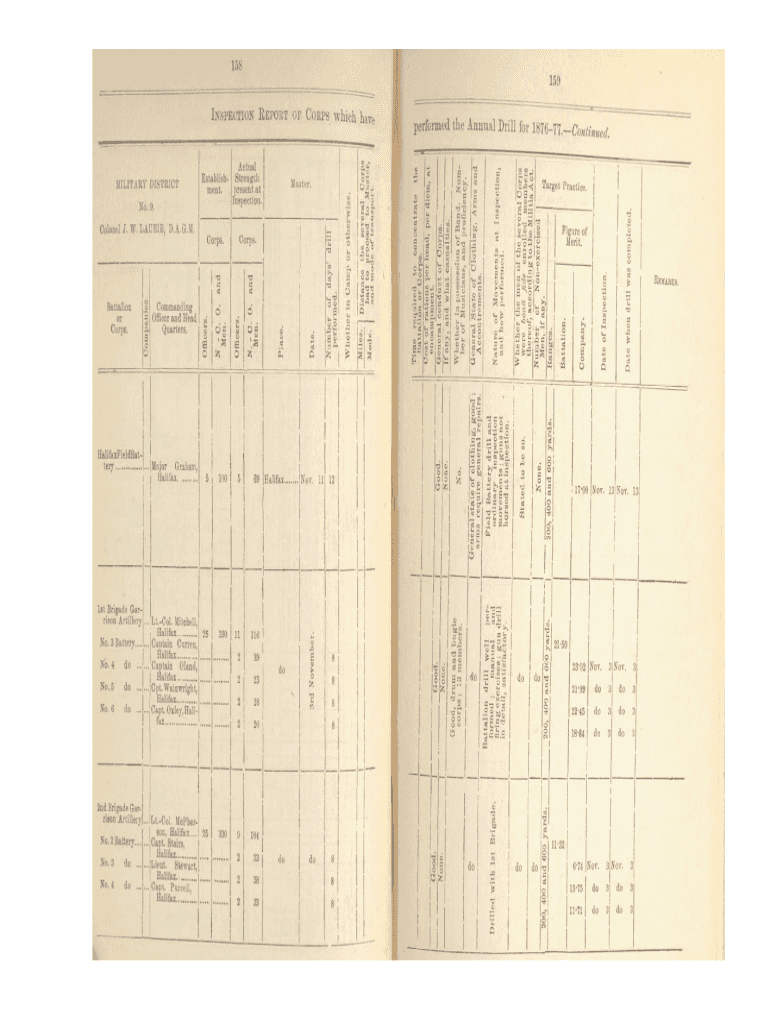 158
INSPECTION REPORT OF CORPS which have
MILITARY DISTRICT
No. 9.
Colonel J. W. LAURIE, D.A.G.M.
Establish-
ment.
Actual
Strength
present at
Inspection.
Muster.
Corps.
Corps.
Battalion
or
Corps.
Companies.
Commanding
Officer and Head
Quarters.
Officers.
N. C. O. and
Men.
Officers.
N. C. O. and
Men.
Place.
Date.
Number of days' drill
performed.
Whether in Camp or otherwise.
Distance the several Corps
had to proceed to Muster,
and mode of transport.
Miles.
Mode.
Halifax Field Bat-
tery ............ Major Graham,
Halifax. ....... 5 100 5 69 Halifax...... Nov. 11 12
1st Brigade Gar-
rison Artillery ... Lt.-Col. Mitchell,
Halifax ......... 25 330 11 116
No. 3 Battery...... Captain Curren,
Halifax............ 2 39 8
No. 4 do ...... Captain Oland,
Halifax ............ 2 23 do 3rd November. 8
No. 5 do ...... Cpt. Wainwright,
Halifax............ 2 28 8
No. 6 do ...... Capt. Oxley, Hali-
fax............ 2 26 8
2nd Brigade Gar-
rison Artillery ... Lt.-Col. McPher-
son, Halifax.... 25 330 9 104
No. 2 Battery...... Capt. Stairs,
Halifax............ 2 33 do do 8
No. 3 do ...... Lieut. Stewart,
Halifax. ........... 2 38 8
No. 4 do ...... Capt. Purcell,
Halifax............ 2 33 8
159
performed the Annual Drill for 1876-77.—Continued.
Time required to concentrate the
Battalion or Corps.
Cost of rations per head, per diem, at
encampment.
General conduct of Corps.
If any, and what casualties.
Whether in possession of Band. Num-
ber of Musicians, and proficiency.
General State of Clothing, Arms and
Accoutrements.
Nature of Movements at Inspection,
and how performed.
Whether the men of the several Corps
were bona fide enrolled members
thereof, according to the Militia Act.
Number of Non-exercised
Men, if any.
Target Practice.
Ranges.
Figure of
Merit.
Battalion.
Company.
Date of Inspection.
Date when drill was completed.
REMARKS.
Good.
None.
No.
General state of clothing, good;
arms require general repairs.
Field Battery drill and
ordinary inspection
movements; guns not
horsed at inspection.
Stated to be so.
None.
200, 400 and 600 yards.
17·00 Nov. 13 Nov. 13
Good.
None.
Good, drum and bugle
corps; 13 members.
do
Battalion drill well per-
formed; manual and
firing exercises; gun drill
in detail, satisfactory.
do do
200, 400 and 600 yards.
26·50
23·02 Nov. 3 Nov. 3
21·99 do 3 do 3
22·45 do 3 do 3
18·84 do 3 do 3
Good.
None.
do
Drilled with 1st Brigade.
do do
200, 400 and 600 yards.
11·32
6·74 Nov. 3 Nov. 3
13·75 do 3 do 3
11·71 do 3 do 3